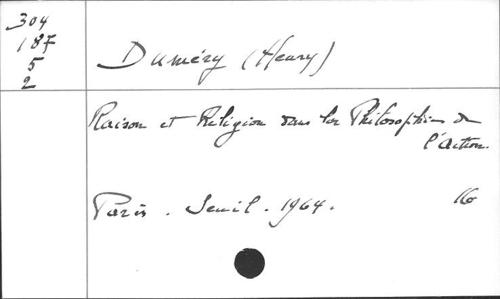 304
187
5
2
Duméry (Henry)
Raison et Religion dans la Philosophie de
l'action.
Paris. Seuil. 1964. 16